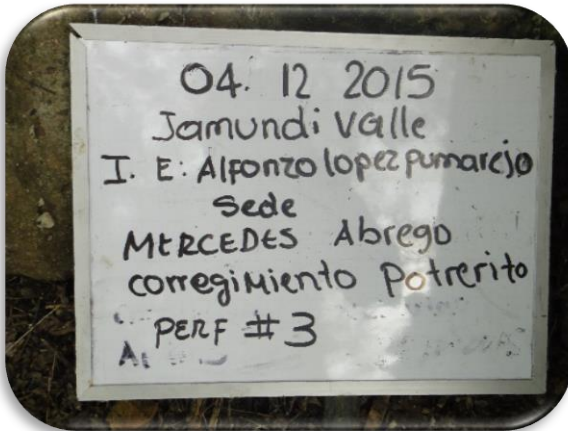 04. 12 2015
Jamundi Valle
I. E: Alfonzo lopez pumarejo
Sede
MERCEDES Abrego
corregimiento Potrerito
PERF #3